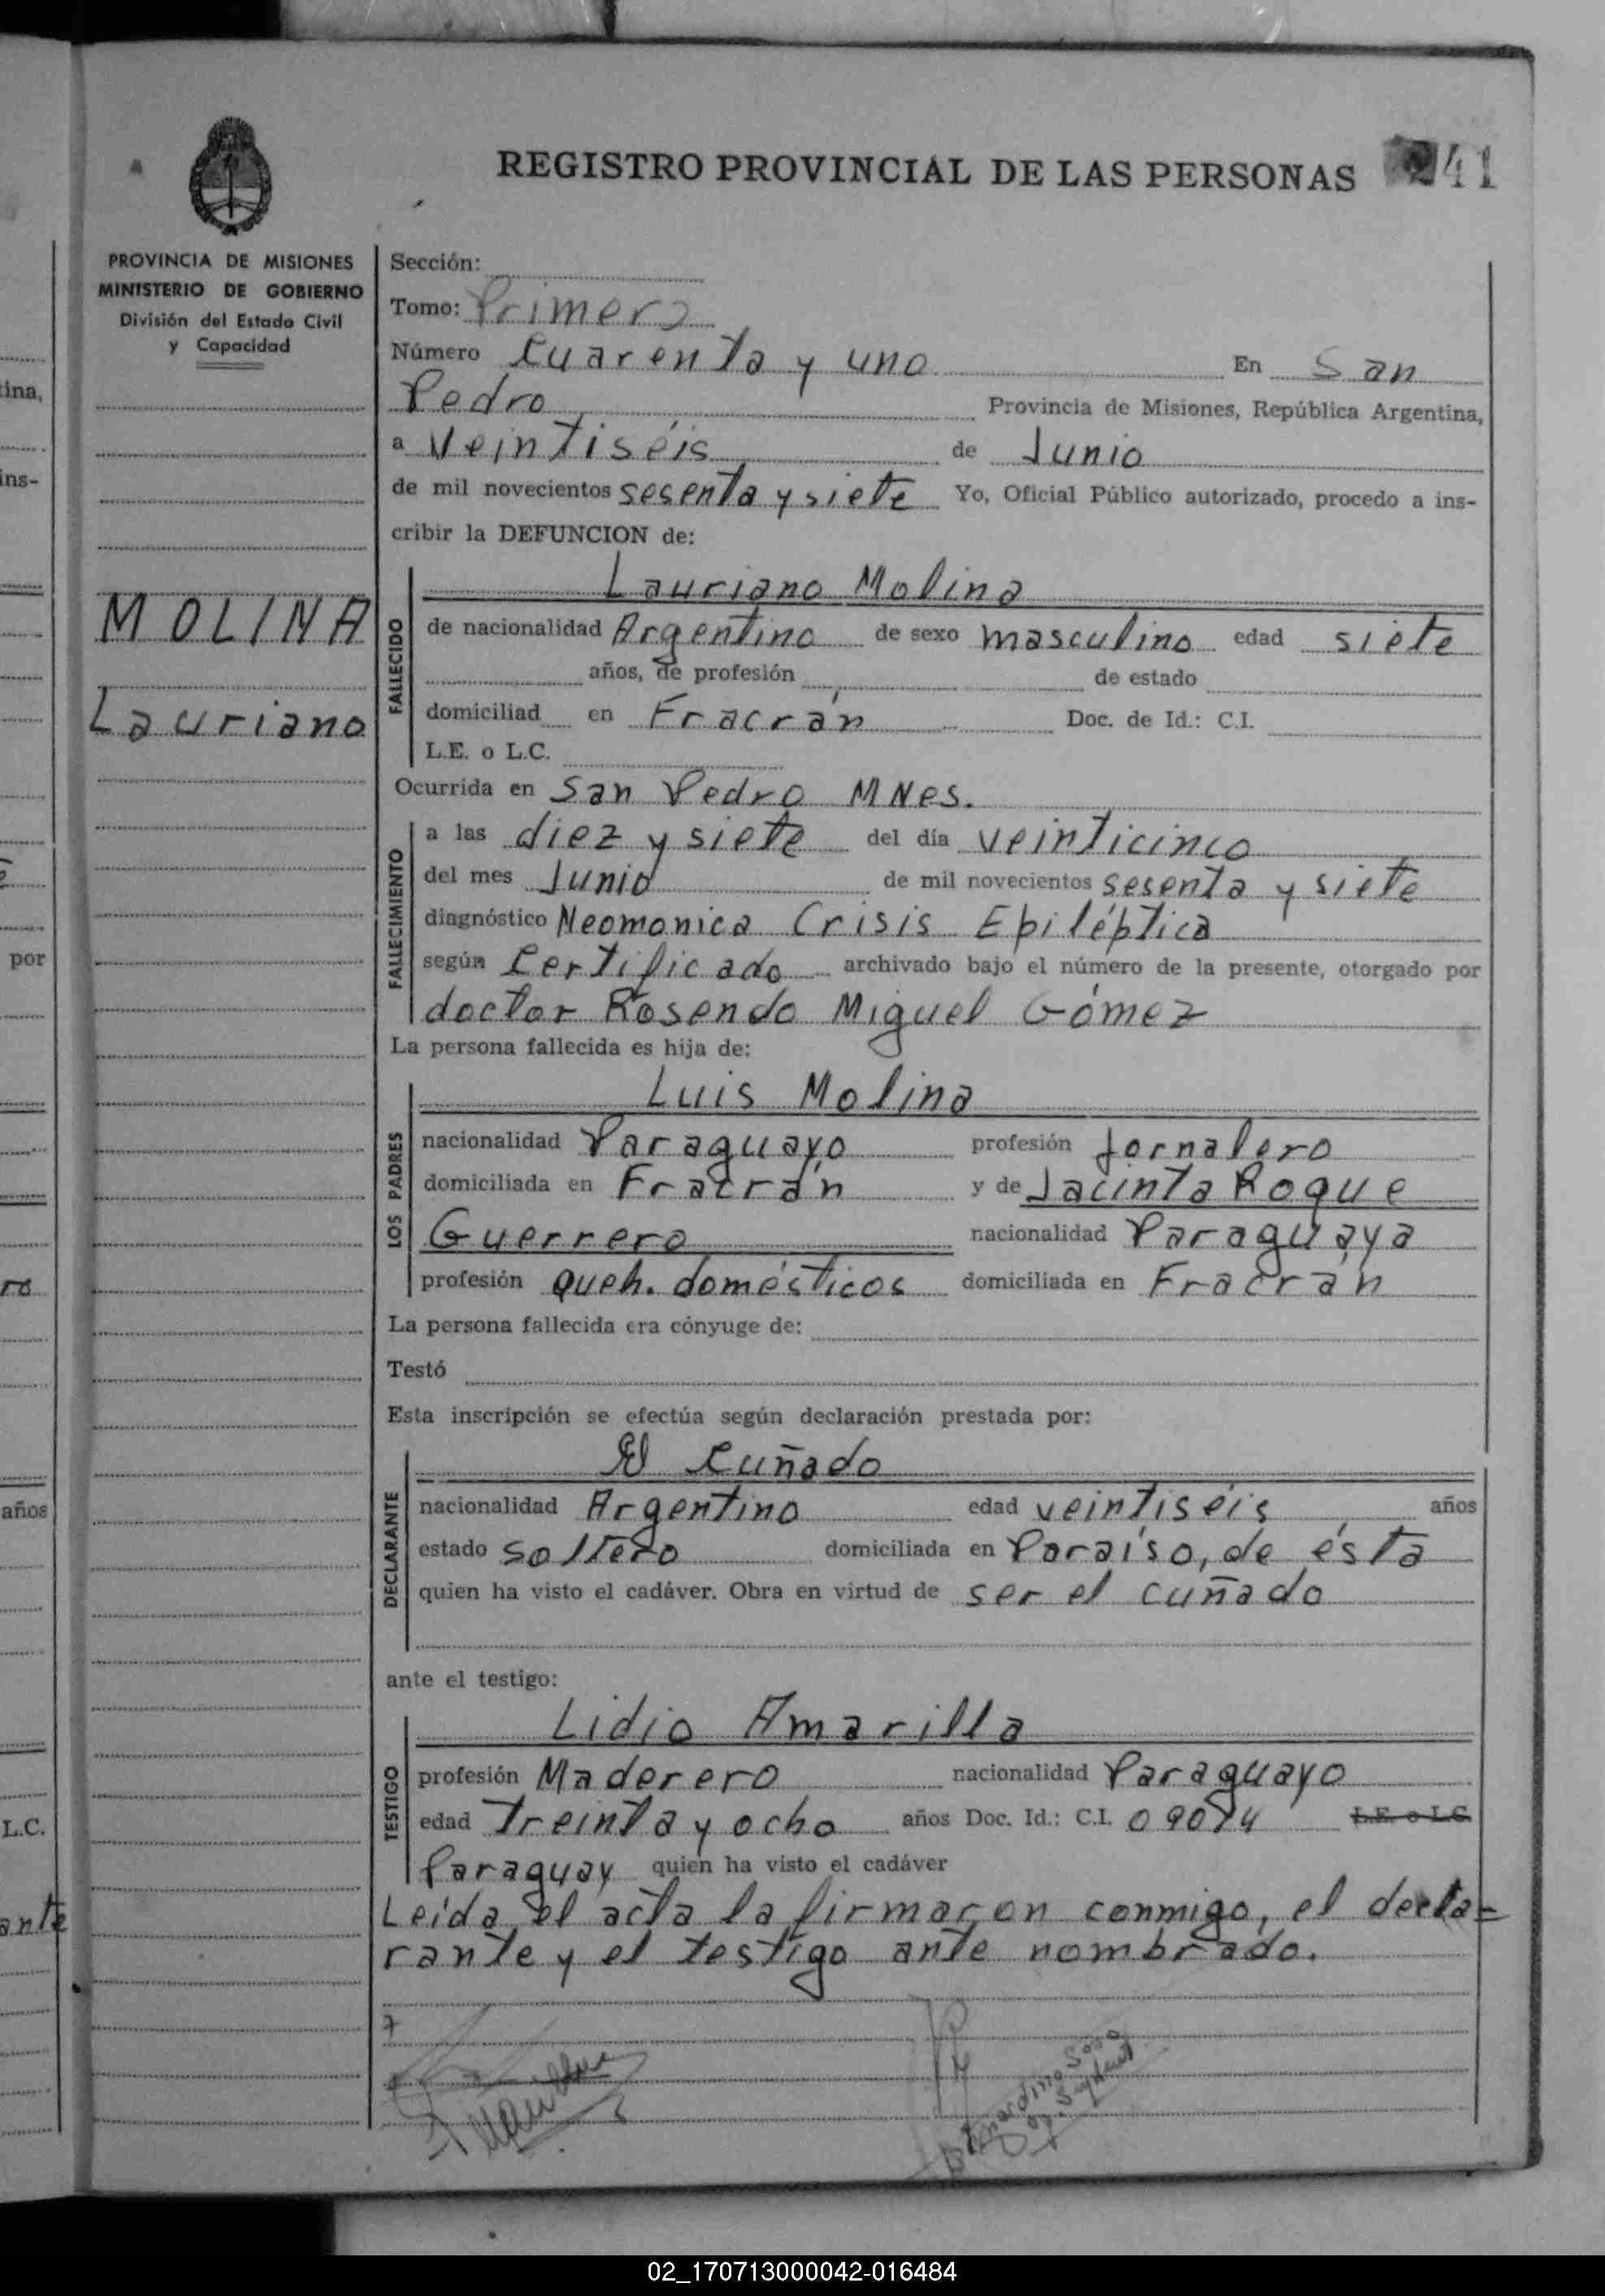 REGISTRO PROVINCIAL DE LAS PERSONAS 41
PROVINCIA DE MISIONES
MINISTERIO DE GOBIERNO
División del Estado Civil
y Capacidad
MOLINA
Lauriano
Sección:
Tomo: Primero
Número Cuarenta y uno En San
Pedro Provincia de Misiones, República Argentina,
a Veintiséis de Junio
de mil novecientos sesenta y siete Yo, Oficial Público autorizado, procedo a ins-
cribir la DEFUNCION de:
FALLECIDO
Lauriano Molina
de nacionalidad Argentino de sexo masculino edad siete
años, de profesión de estado
domiciliad en Fracrán Doc. de Id.: C.I.
L.E. o L.C.
Ocurrida en San Pedro MNes.
FALLECIMIENTO
a las diez y siete del día veinticinco
del mes Junio de mil novecientos sesenta y siete
diagnóstico Neomonica Crisis Epiléptica
según Certificado archivado bajo el número de la presente, otorgado por
doctor Rosendo Miguel Gómez
La persona fallecida es hija de:
LOS PADRES
Luis Molina
nacionalidad Paraguayo profesión Jornalero
domiciliada en Fracrán y de Jacinta Roque
Guerrero nacionalidad Paraguaya
profesión queh. domésticos domiciliada en Fracrán
La persona fallecida era cónyuge de:
Testó
Esta inscripción se efectúa según declaración prestada por:
DECLARANTE
El Cuñado
nacionalidad Argentino edad veintiséis años
estado soltero domiciliada en Paraíso, de ésta
quien ha visto el cadáver. Obra en virtud de ser el cuñado
ante el testigo:
TESTIGO
Lidio Amarilla
profesión Maderero nacionalidad Paraguayo
edad Treinta y ocho años Doc. Id.: C.I. 09074 L.E. o L.C.
Paraguay quien ha visto el cadáver
Leída el acta la firmaron conmigo, el decla=
rante y el testigo ante nombrado.
Bernardino Sosa
tina,
ins-
por
años
L.C.
ante
02_170713000042-016484